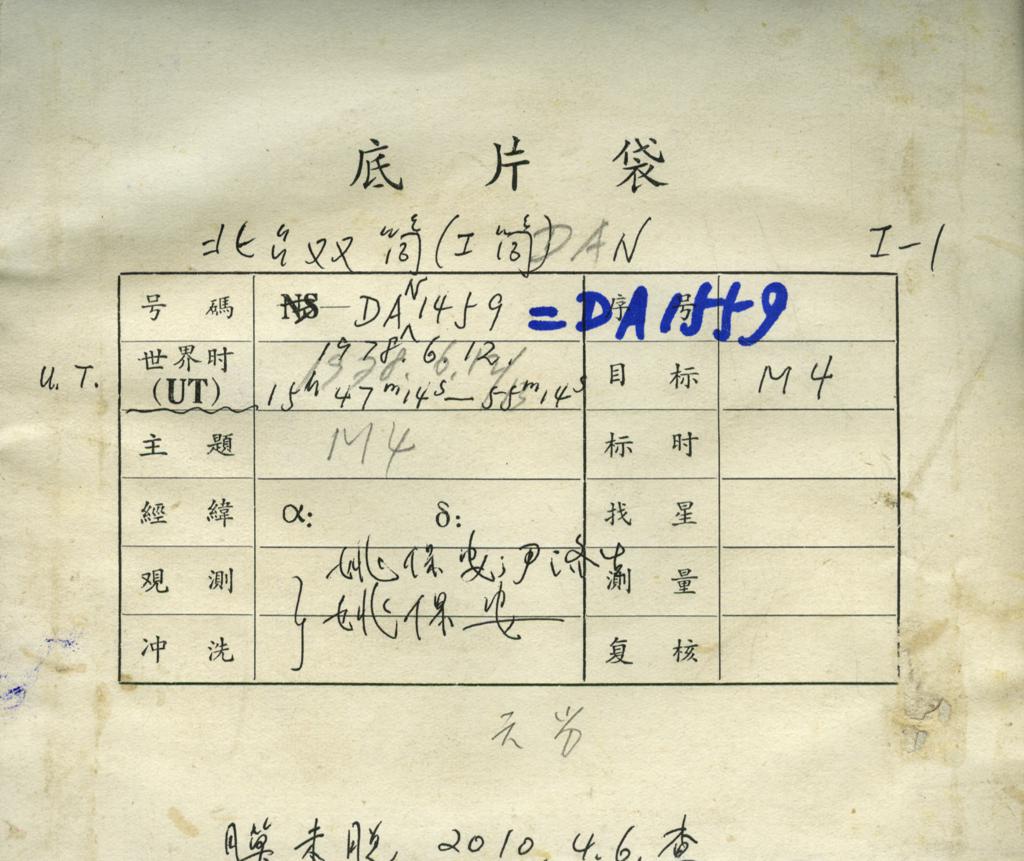 底片袋
北台双筒(I筒)DAN I-1
号碼 NS—DAN1459 =DA1559 序号
U.T. 世界时(UT) 1978.6.12. 目标 M4
15h47m14s—55m14s
主題 M4 标时
經緯 α: δ: 找星
观測 姚保安;尹济生 測量
冲洗 姚保安 复核
膜未脱 2010.4.6.查